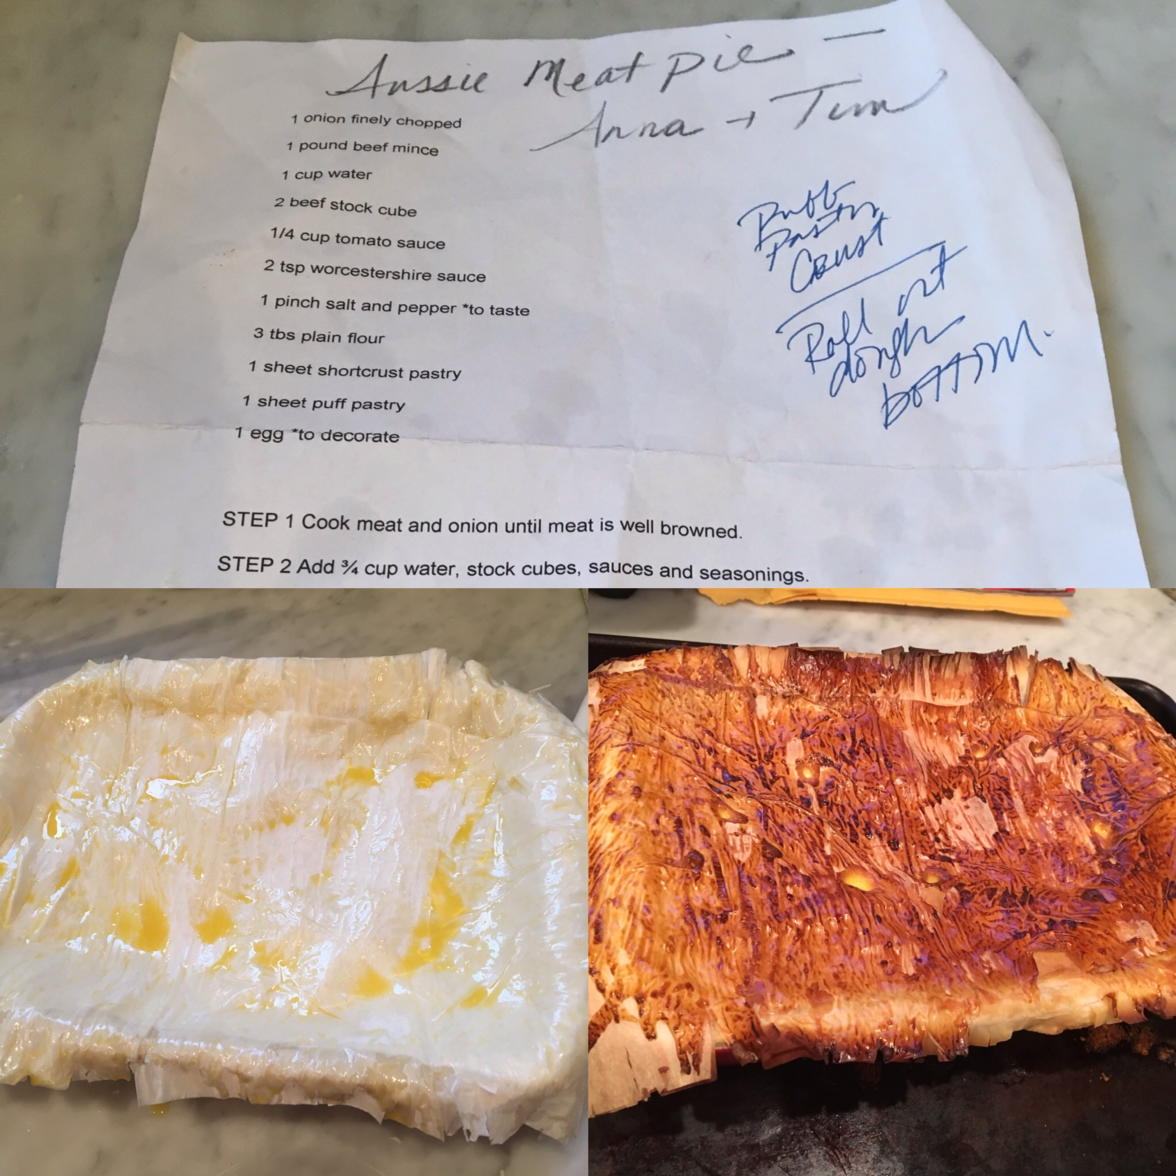 Aussie Meat Pie —
Anna + Tim
1 onion finely chopped
1 pound beef mince
1 cup water
2 beef stock cube
1/4 cup tomato sauce
2 tsp worcestershire sauce
1 pinch salt and pepper *to taste
3 tbs plain flour
1 sheet shortcrust pastry
1 sheet puff pastry
1 egg *to decorate
Puff
Pastry
Crust
Roll out
dough
bottom.
STEP 1 Cook meat and onion until meat is well browned.
STEP 2 Add ¾ cup water, stock cubes, sauces and seasonings.